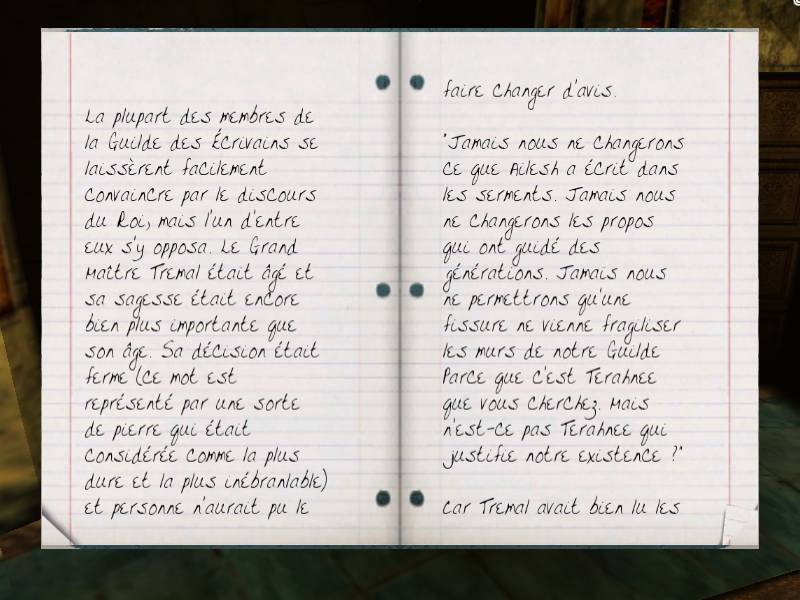 La plupart des membres de
la Guilde des Écrivains se
laissèrent facilement
convaincre par le discours
du Roi, mais l'un d'entre
eux s'y opposa. Le Grand
Maître Tremal était âgé et
sa sagesse était encore
bien plus importante que
son âge. Sa décision était
ferme (ce mot est
représenté par une sorte
de pierre qui était
considérée comme la plus
dure et la plus inébranlable)
et personne n'aurait pu le
faire changer d'avis.
"Jamais nous ne changerons
ce que Ailesh a écrit dans
les serments. Jamais nous
ne changerons les propos
qui ont guidé des
générations. Jamais nous
ne permettrons qu'une
fissure ne vienne fragiliser
les murs de notre Guilde
parce que c'est Terahnee
que vous cherchez. Mais
n'est-ce pas Terahnee qui
justifie notre existence ?"
Car Tremal avait bien lu les